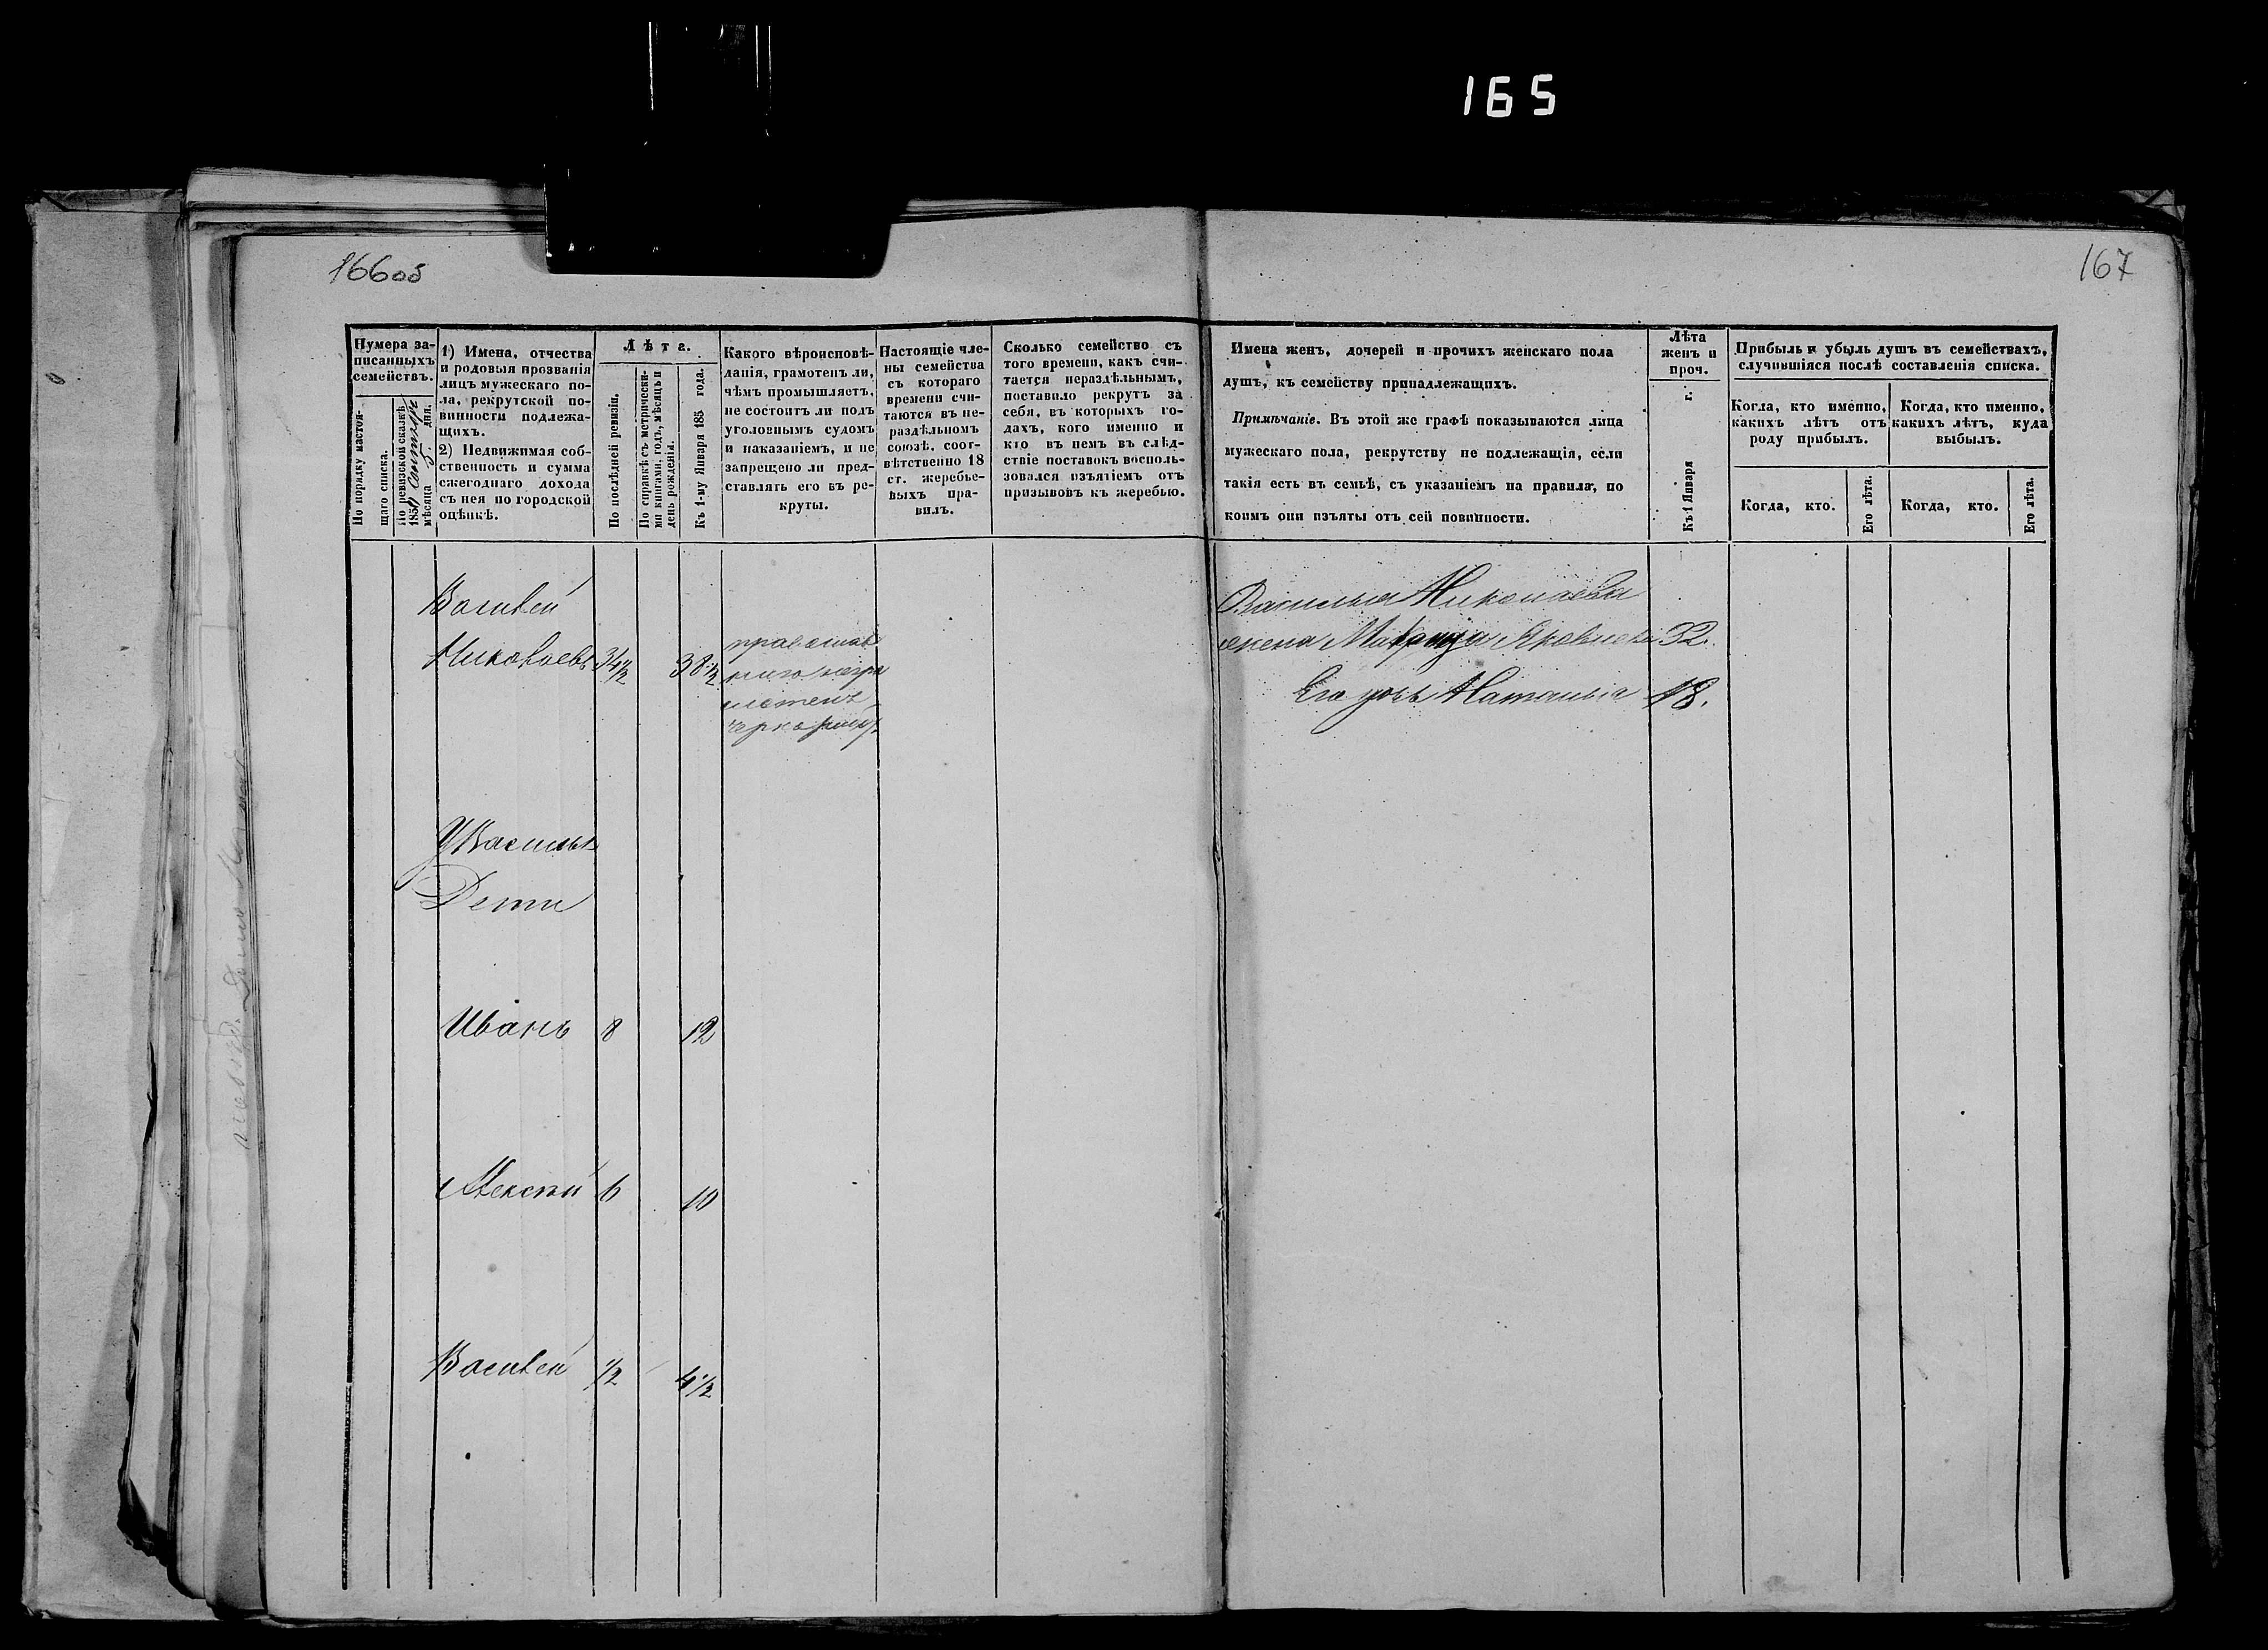 165
166об
167
Нумера за-
писанныхъ
семействъ.
По порядку настоя-
щаго списка.
По ревизской сказкѣ
185
мѣсяца 5. дня.
1) Имена, отчества
и родовыя прозванія
лицъ мужескаго по-
ла, рекрутской по-
винности подлежа-
щихъ.
2) Недвижимая соб-
ственность и сумма
ежегоднаго дохода
съ нея по городской
оцѣнкѣ.
Лѣта.
По послѣдней ревизіи.
По справкѣ съ метрически-
ми книгами, годъ, мѣсяцъ и
день рожденія.
Къ 1-му Января 185 года.
Какого вѣроисповѣ-
данія, грамотенъ ли,
чѣмъ промышляетъ,
не состоитъ ли подъ
уголовнымъ судомъ
и наказаніемъ, и не
запрещено ли пред-
ставлять его въ ре-
круты.
Настоящіе чле-
ны семейства
съ котораго
времени счи-
таются въ не-
раздѣльномъ
союзѣ, соот-
вѣтственно 18
ст. жеребье-
выхъ пра-
вилъ.
Сколько семейство съ
того времени, какъ счи-
тается нераздѣльнымъ,
поставило рекрутъ за
себя, въ которыхъ го-
дахъ, кого именно и
кто въ немъ въ слѣд-
ствіе поставокъ восполь-
зовался изъятіемъ отъ
призывовъ къ жеребью.
Имена женъ, дочерей и прочихъ женскаго пола
душъ, къ семейству принадлежащихъ.
Примѣчаніе. Въ этой же графѣ показываются лица
мужескаго пола, рекрутству не подлежащія, если
такія есть въ семьѣ, съ указаніемъ на правила, по
коимъ они изъяты отъ сей повинности.
Лѣта
женъ и
проч.
Къ 1 Января г.
Прибыль и убыль душъ въ семействахъ,
случившіяся послѣ составленія списка.
Когда, кто именно,
какихъ лѣтъ отъ
роду прибылъ.
Когда, кто именно,
какихъ лѣтъ, куда
выбылъ.
Когда, кто.
Его лѣта.
Когда, кто.
Его лѣта.
Василей
Николаевъ 34½ 38½
православ
наго негра
мотенъ
Василья Николаева
жена Яковлева 32.
Его дочь Наталья 18.
У Василья
Дети
Иванъ 8 12
Алексей 6 10
Василей ½ 4½